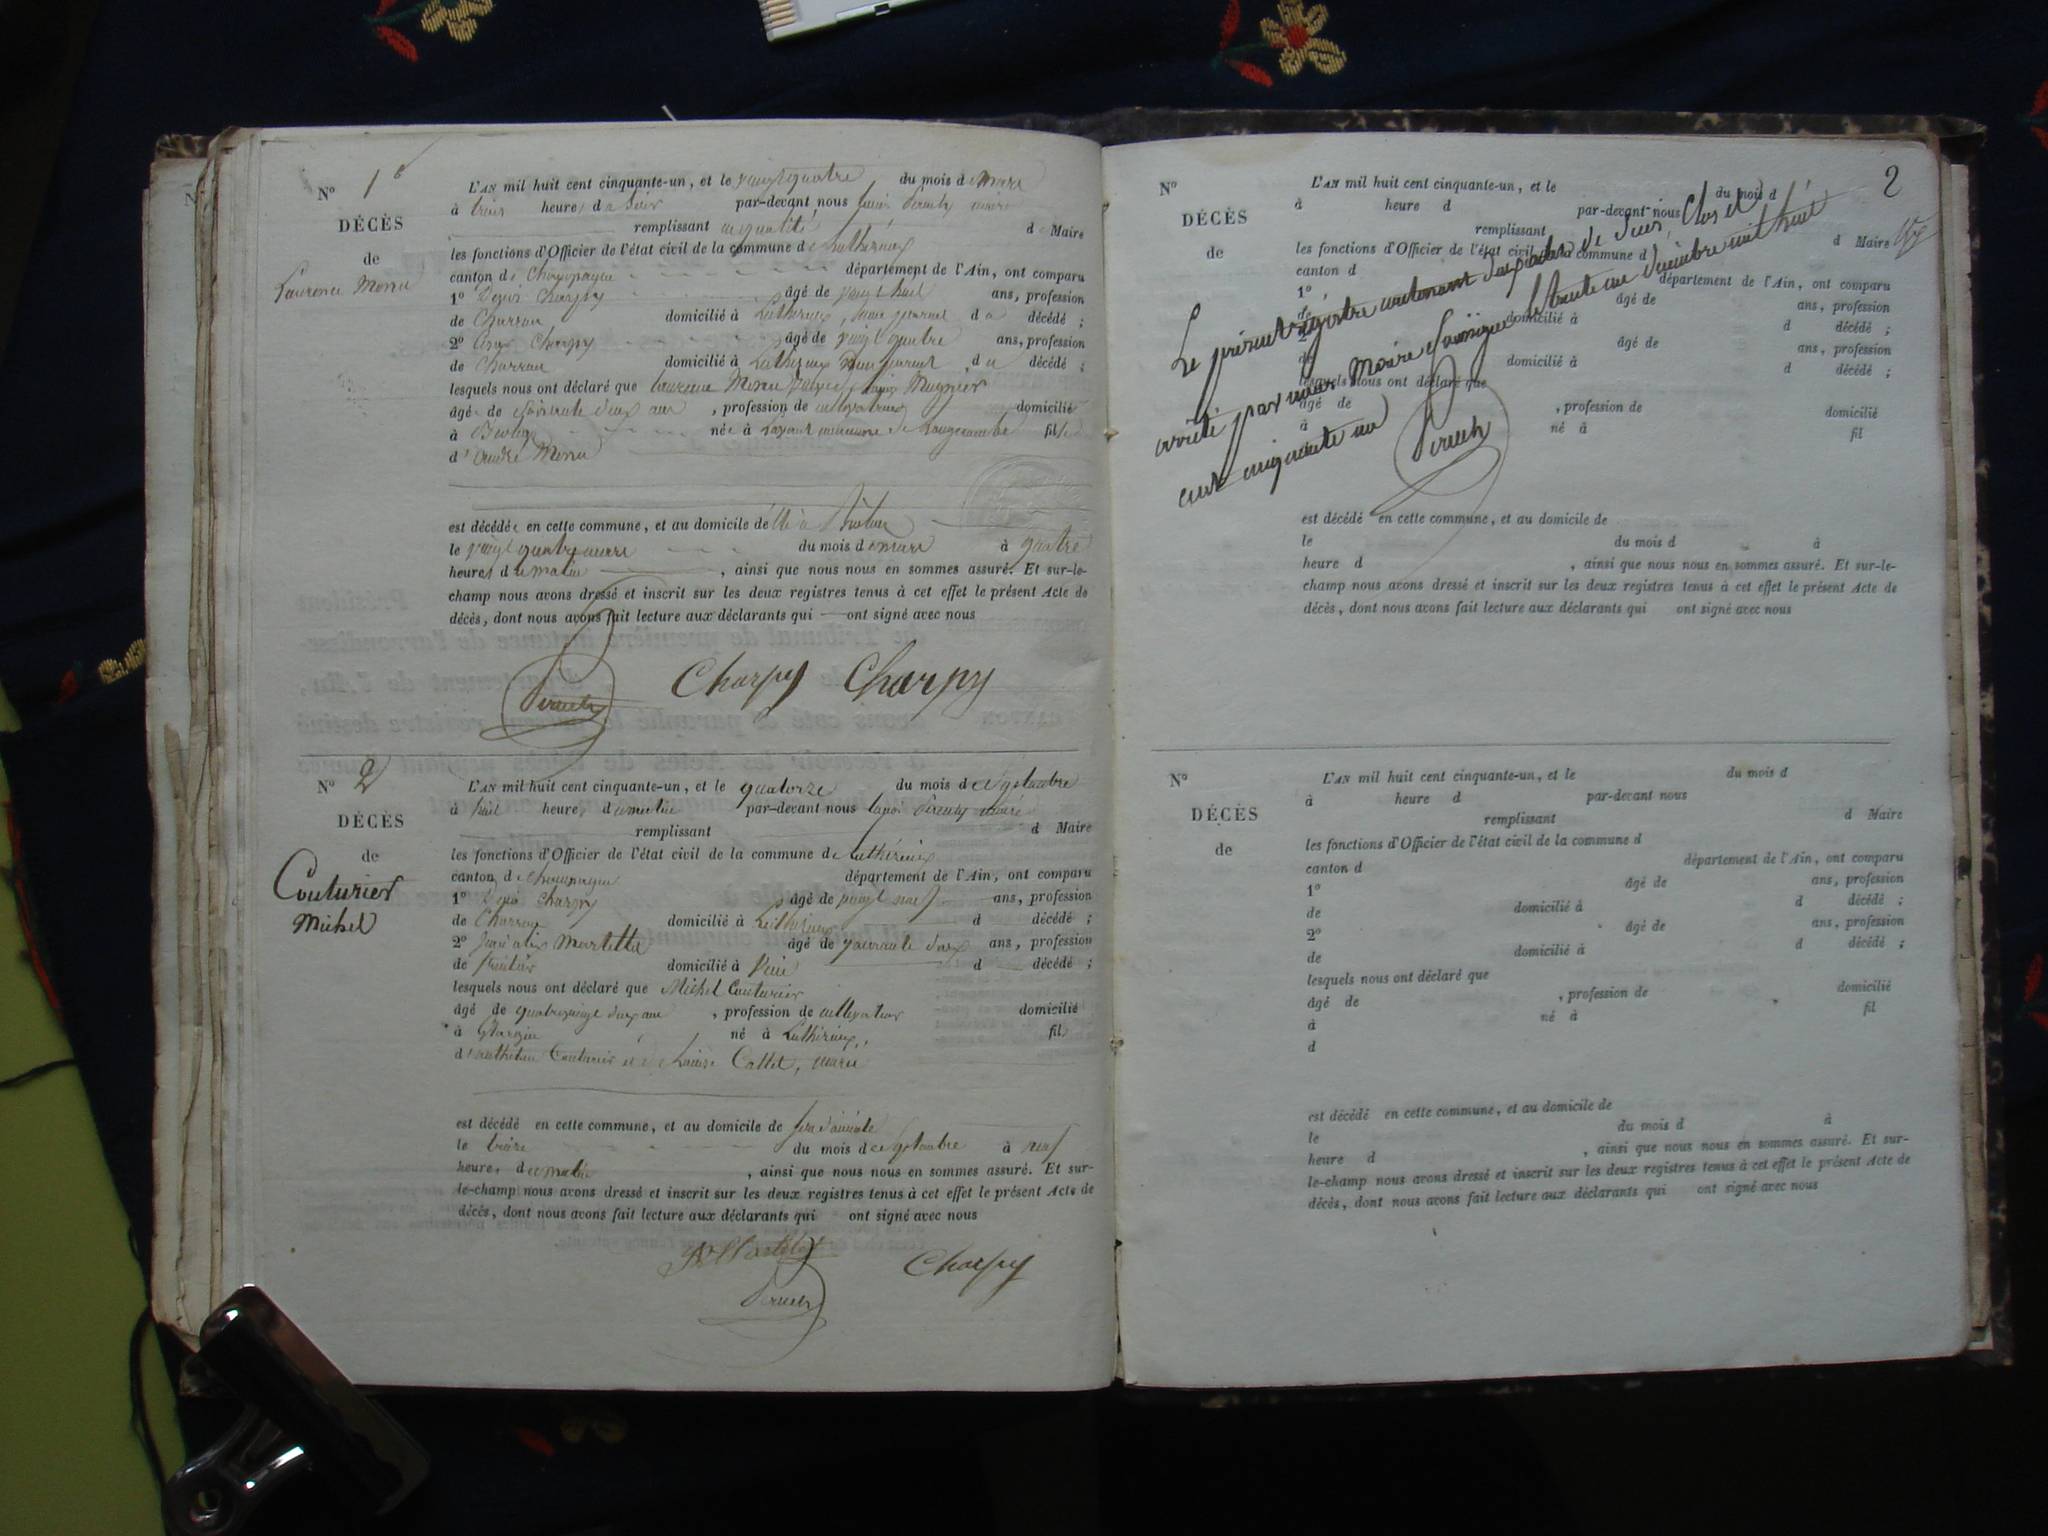 N° 1
DÉCÈS
de
Laurence Monu
L'AN mil huit cent cinquante-un, et le vingt quatre du mois de mars
à trois heures du soir par-devant nous maire
remplissant d Maire
les fonctions d'Officier de l'état civil de la commune de Luthézieu
canton de Champagne département de l'Ain, ont comparu
1° Denis Charpy âgé de vingt huit ans, profession
de Charron domicilié à Luthézieu, non parent d la décédé ;
2° Charpy âgé de vingt quatre ans, profession
de Charron domicilié à Luthézieu non parent d la décédé ;
lesquels nous ont déclaré que Laurence Monu
âgé de soixante deux ans, profession de cultivatrice domicilié
à née à commune de fille
d'André Monu
est décédée en cette commune, et au domicile de
le vingt quatre mars du mois de mars à quatre
heures du matin, ainsi que nous nous en sommes assuré. Et sur-le-
champ nous avons dressé et inscrit sur les deux registres tenus à cet effet le présent Acte de
décès, dont nous avons fait lecture aux déclarants qui ont signé avec nous
Charpy Charpy
N° 2
DÉCÈS
de
Couturier
Michel
L'AN mil huit cent cinquante-un, et le quatorze du mois de septembre
à huit heures du matin par-devant nous maire
remplissant d Maire
les fonctions d'Officier de l'état civil de la commune de Luthézieu
canton de Champagne département de l'Ain, ont comparu
1° Denis Charpy âgé de vingt neuf ans, profession
de Charron domicilié à Luthézieu d décédé ;
2° âgé de quarante deux ans, profession
de domicilié à d décédé ;
lesquels nous ont déclaré que Michel Couturier
âgé de quatrevingt deux ans, profession de cultivateur domicilié
à né à Luthézieu, fils
d'Anthelme Couturier et de Louise Callet, marié
est décédé en cette commune, et au domicile de
le treize du mois de septembre à neuf
heures du matin, ainsi que nous nous en sommes assuré. Et sur-
le-champ nous avons dressé et inscrit sur les deux registres tenus à cet effet le présent Acte de
décès, dont nous avons fait lecture aux déclarants qui ont signé avec nous
Charpy
2
N°
DÉCÈS
de
L'AN mil huit cent cinquante-un, et le du mois d
à heure d par-devant nous
remplissant d Maire
les fonctions d'Officier de l'état civil de la commune d
canton d département de l'Ain, ont comparu
1° âgé de ans, profession
de domicilié à d décédé ;
2° âgé de ans, profession
de domicilié à d décédé ;
lesquels nous ont déclaré que
âgé de , profession de domicilié
à né à fil
Le présent registre contenant deux actes de décès, Clos et
arrêté par nous Maire soussigné le trente un décembre mil huit
cent cinquante un
est décédé en cette commune, et au domicile de
le du mois d à
heure d , ainsi que nous nous en sommes assuré. Et sur-le-
champ nous avons dressé et inscrit sur les deux registres tenus à cet effet le présent Acte de
décès, dont nous avons fait lecture aux déclarants qui ont signé avec nous
N°
DÉCÈS
de
L'AN mil huit cent cinquante-un, et le du mois d
à heure d par-devant nous
remplissant d Maire
les fonctions d'Officier de l'état civil de la commune d
canton d département de l'Ain, ont comparu
1° âgé de ans, profession
de domicilié à d décédé ;
2° âgé de ans, profession
de domicilié à d décédé ;
lesquels nous ont déclaré que
âgé de , profession de domicilié
à né à fil
d
est décédé en cette commune, et au domicile de
le du mois d à
heure d , ainsi que nous nous en sommes assuré. Et sur-
le-champ nous avons dressé et inscrit sur les deux registres tenus à cet effet le présent Acte de
décès, dont nous avons fait lecture aux déclarants qui ont signé avec nous